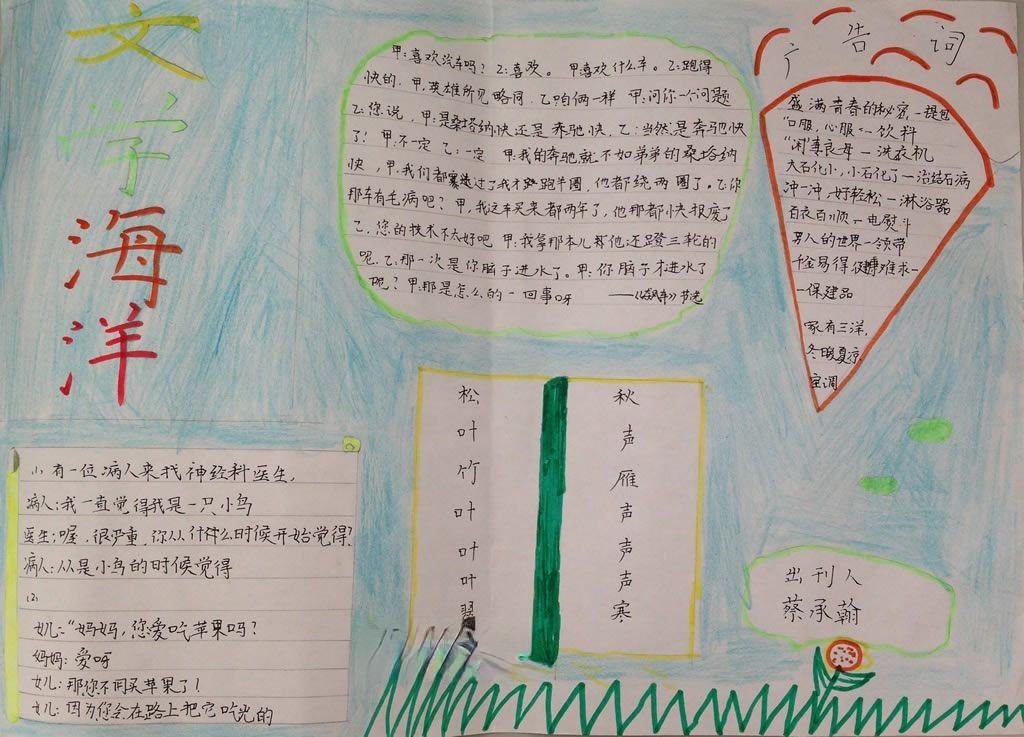 文学海洋
甲:喜欢汽车吗?乙:喜欢。甲:喜欢什么车。乙:跑得
快的.甲,英雄所见略同.乙咱俩一样 甲:问你一个问题
乙:您说,甲:是桑塔纳快还是奔驰快,乙:当然是奔驰快
了!甲不一定 乙:一定 甲:我的奔驰就不如弟弟的桑塔纳
快,甲:我们都赛过了我才跑半圈,他都绕两圈了。乙:你
那车有毛病吧?甲,我这车买来都两年了,他那都快报废了
乙,您的技术不太好吧 甲:我拿那本儿那他还蹬三轮的
呢.乙:那一次是你脑子进水了。甲:你脑子才进水了
呢?甲:那是怎么的一回事呀 ——《飙车》节选
广告词
盛满青春的秘密,一提包
"口服,心服"一饮料
"闲"妻良母一洗衣机
大石化小,小石化了一治结石病
冲一冲,好轻松一淋浴器
百衣百顺一电熨斗
男人的世界一领带
千金易得 难求一
一保健品
家有三洋,
冬暖夏凉
空调
(1)有一位病人来找神经科医生,
病人:我一直觉得我是一只小鸟
医生:喔,很严重,你从什么时候开始觉得?
病人:从是小鸟的时候觉得
(2)
女儿:"妈妈,您爱吃苹果吗?
妈妈:爱呀
女儿:那你不用买苹果了!
女儿:因为您会在路上把它吃光的
松叶竹叶叶叶翠
秋声雁声声声寒
出刊人
蔡承翰